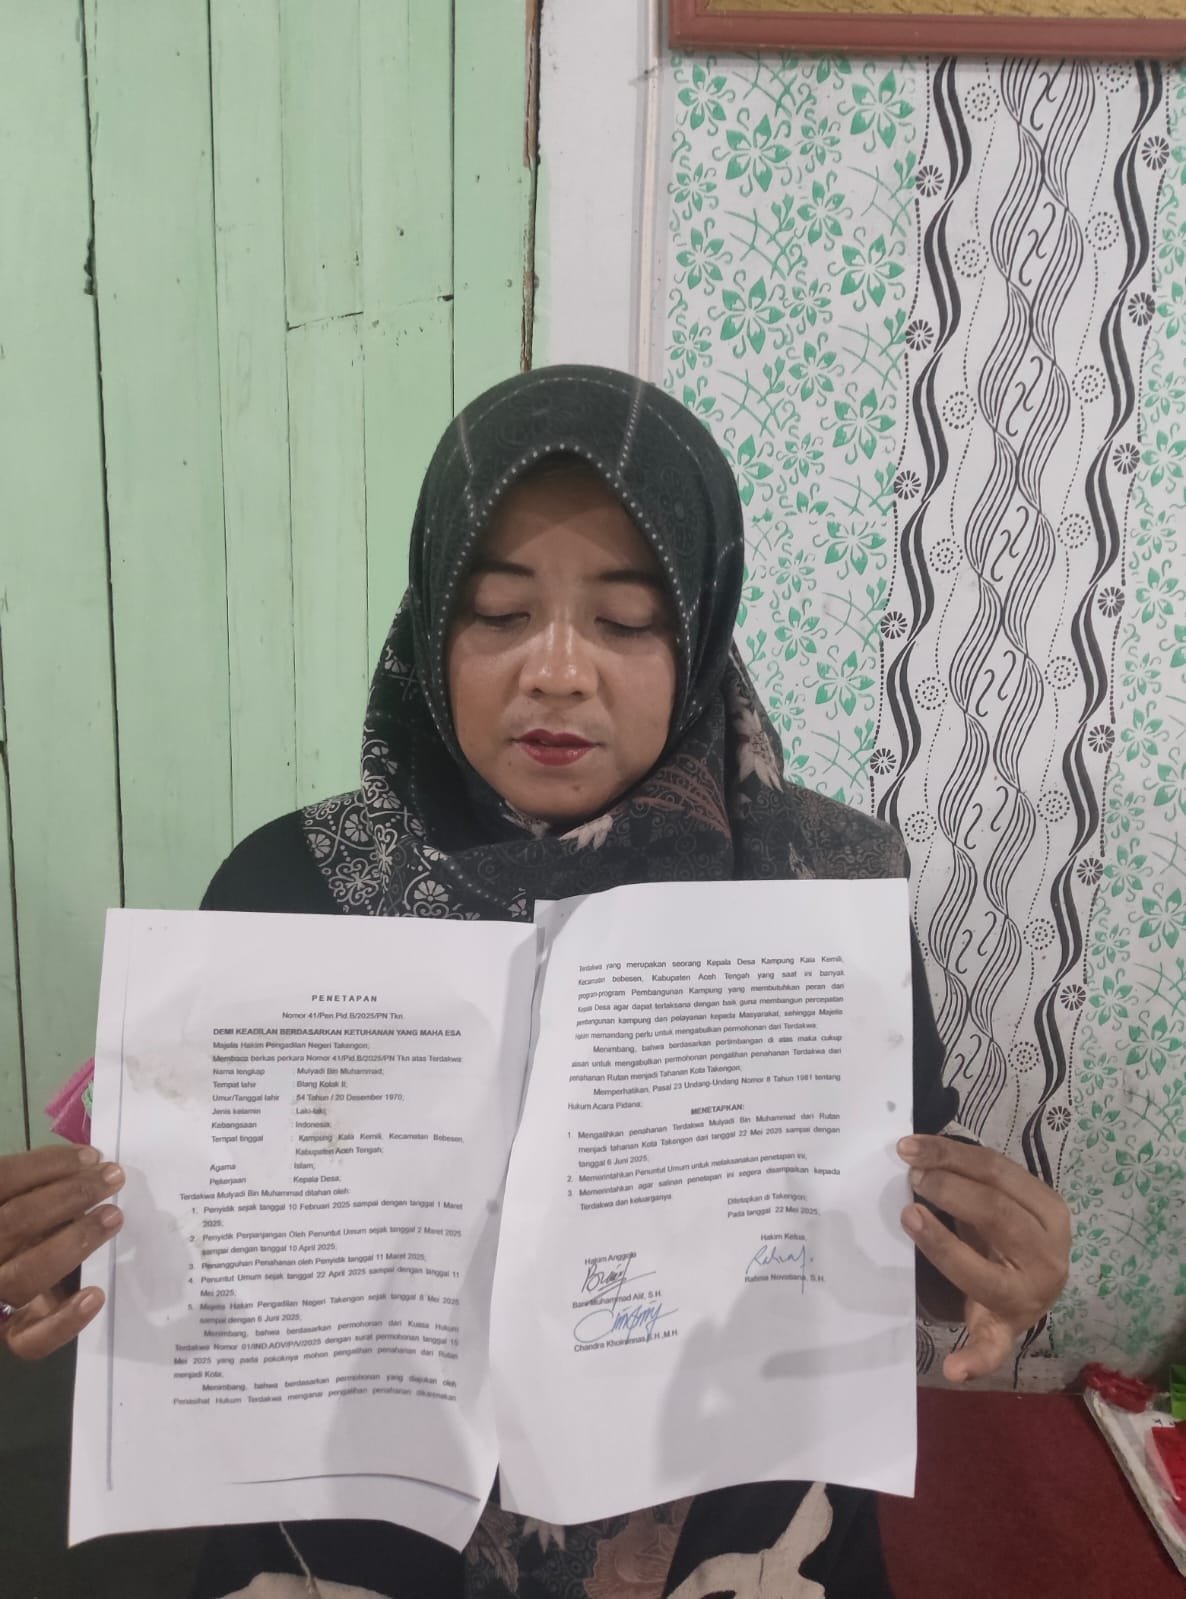 PENETAPAN
Nomor 41/Pen.Pid.B/2025/PN Tkn.
DEMI KEADILAN BERDASARKAN KETUHANAN YANG MAHA ESA
Majelis Hakim Pengadilan Negeri Takengon;
Membaca berkas perkara Nomor 41/Pid.B/2025/PN Tkn atas Terdakwa:
Nama lengkap : Mulyadi Bin Muhammad;
Tempat lahir : Blang Kolak II;
Umur/Tanggal lahir : 54 Tahun / 20 Desember 1970;
Jenis kelamin : Laki-laki;
Kebangsaan : Indonesia;
Tempat tinggal : Kampung Kala Kemili, Kecamatan Bebesen,
Kabupaten Aceh Tengah;
Agama : Islam;
Pekerjaan : Kepala Desa;
Terdakwa Mulyadi Bin Muhammad ditahan oleh:
1. Penyidik sejak tanggal 10 Februari 2025 sampai dengan tanggal 1 Maret
2025;
2. Penyidik Perpanjangan Oleh Penuntut Umum sejak tanggal 2 Maret 2025
sampai dengan tanggal 10 April 2025;
3. Penangguhan Penahanan oleh Penyidik tanggal 11 Maret 2025;
4. Penuntut Umum sejak tanggal 22 April 2025 sampai dengan tanggal 11
Mei 2025;
5. Majelis Hakim Pengadilan Negeri Takengon sejak tanggal 8 Mei 2025
sampai dengan 6 Juni 2025;
Menimbang, bahwa berdasarkan permohonan dari Kuasa Hukum
Terdakwa Nomor 01/IND.ADV/P/V/2025 dengan surat permohonan tanggal 15
Mei 2025 yang pada pokoknya mohon pengalihan penahanan dari Rutan
menjadi Kota;
Menimbang, bahwa berdasarkan permohonan yang diajukan oleh
Penasihat Hukum Terdakwa mengenai pengalihan penahanan dikarenakan
Terdakwa yang merupakan seorang Kepala Desa Kampung Kala Kemili,
Kecamatan bebesen, Kabupaten Aceh Tengah yang saat ini banyak
program-program Pembangunan Kampung yang membutuhkan peran dari
Kepala Desa agar dapat terlaksana dengan baik guna membangun percepatan
pembangunan kampung dan pelayanan kepada Masyarakat, sehingga Majelis
Hakim memandang perlu untuk mengabulkan permohonan dari Terdakwa;
Menimbang, bahwa berdasarkan pertimbangan di atas maka cukup
alasan untuk mengabulkan permohonan pengalihan penahanan Terdakwa dari
penahanan Rutan menjadi Tahanan Kota Takengon;
Memperhatikan, Pasal 23 Undang-Undang Nomor 8 Tahun 1981 tentang
Hukum Acara Pidana;
MENETAPKAN:
1. Mengalihkan penahanan Terdakwa Mulyadi Bin Muhammad dari Rutan
menjadi tahanan Kota Takengon dari tanggal 22 Mei 2025 sampai dengan
tanggal 6 Juni 2025;
2. Memerintahkan Penuntut Umum untuk melaksanakan penetapan ini;
3. Memerintahkan agar salinan penetapan ini segera disampaikan kepada
Terdakwa dan keluarganya.
Ditetapkan di Takengon;
Pada tanggal 22 Mei 2025;
Hakim Anggota
Hakim Ketua,
Bani Muhammad Alif, S.H.
Rahma Novatiana, S.H.
Chandra
S.H.,M.H.